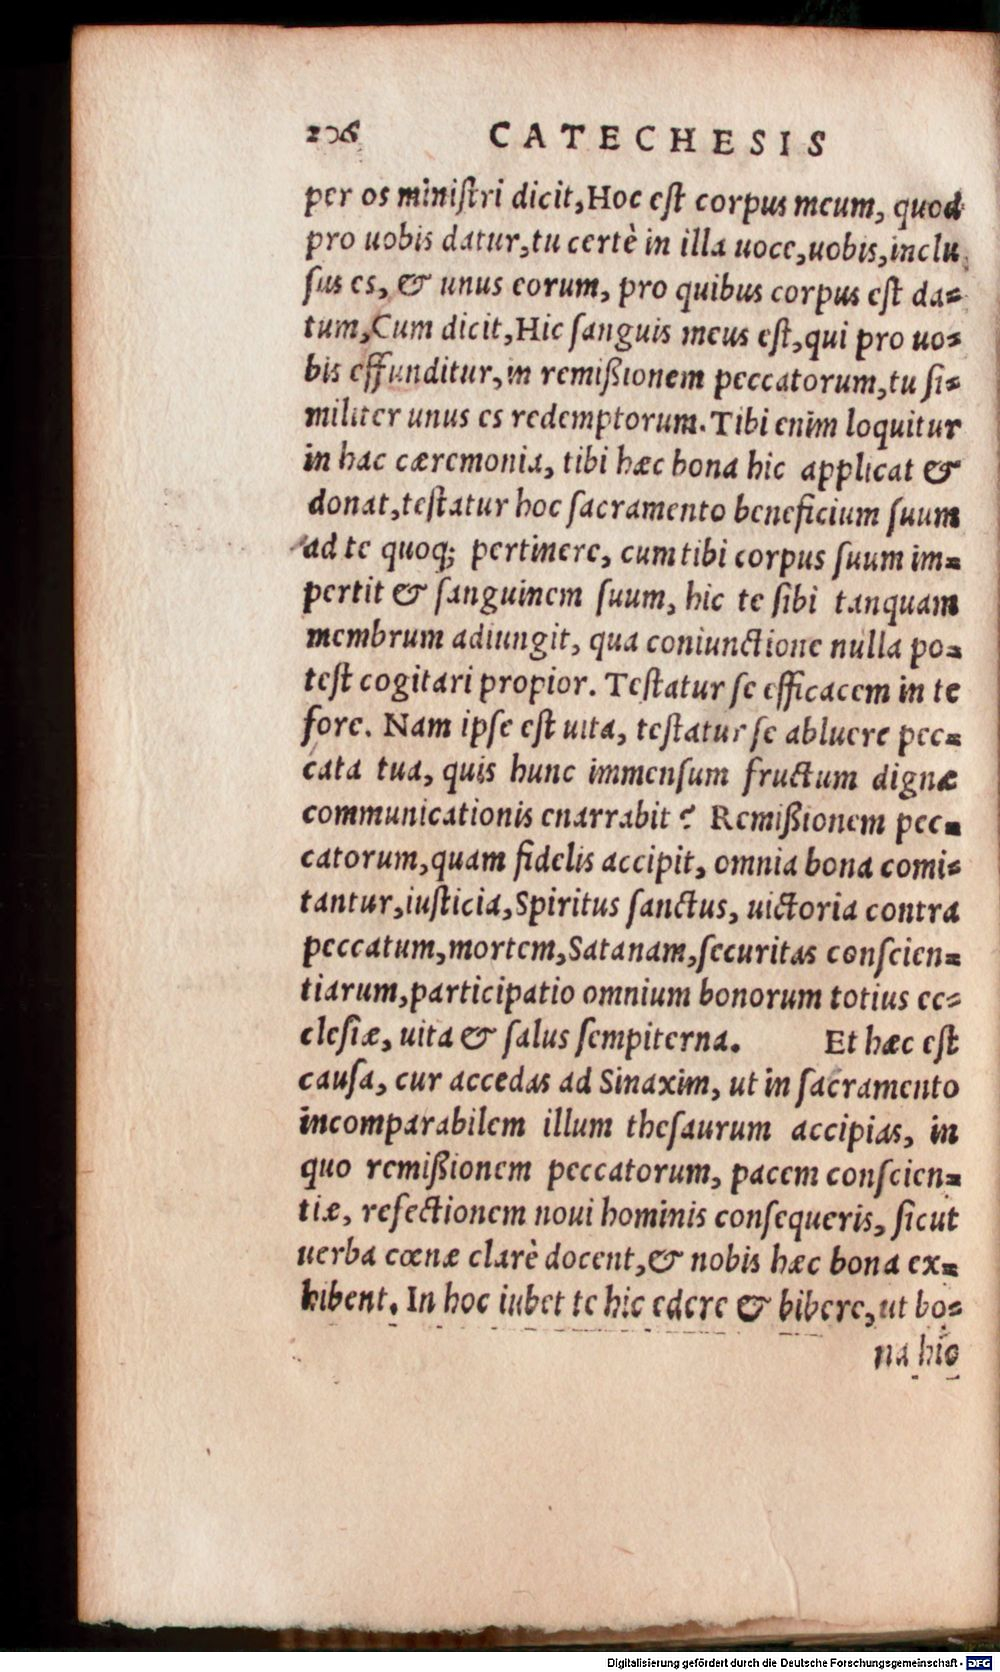 206 CATECHESIS
per os miniſtri dicit,Hoc eſt corpus meum, quod
pro uobis datur,tu certè in illa uoce,uobis,inclu
ſus es, & unus eorum, pro quibus corpus eſt da=
tum,Cum dicit,Hic ſanguis meus eſt,qui pro uo=
bis effunditur,in remißionem peccatorum,tu ſi=
militer unus es redemptorum.Tibi enim loquitur
in hac cæremonia, tibi hæc bona hic applicat &
donat,teſtatur hoc ſacramento beneficium ſuum
ad te quoq; pertinere, cum tibi corpus ſuum im=
pertit & ſanguinem ſuum, hic te ſibi tanquam
membrum adiungit, qua coniunctione nulla po=
teſt cogitari propior. Teſtatur ſe efficacem in te
fore. Nam ipſe eſt uita, teſtatur ſe abluere pec=
cata tua, quis hunc immenſum fructum dignæ
communicationis enarrabit? Remißionem pec=
catorum,quam fidelis accipit, omnia bona comi=
tantur,iuſticia,Spiritus ſanctus, uictoria contra
peccatum,mortem,Satanam,ſecuritas conſcien=
tiarum,participatio omnium bonorum totius ec=
cleſiæ, uita & ſalus ſempiterna. Et hæc eſt
cauſa, cur accedas ad Sinaxim, ut in ſacramento
incomparabilem illum theſaurum accipias, in
quo remißionem peccatorum, pacem conſcien=
tiæ, refectionem noui hominis conſequeris, ſicut
uerba cœnæ clarè docent,& nobis hæc bona ex=
hibent. In hoc iubet te hic edere & bibere,ut bo=
na hic
Digitalisierung gefördert durch die Deutsche Forschungsgemeinschaft - DFG